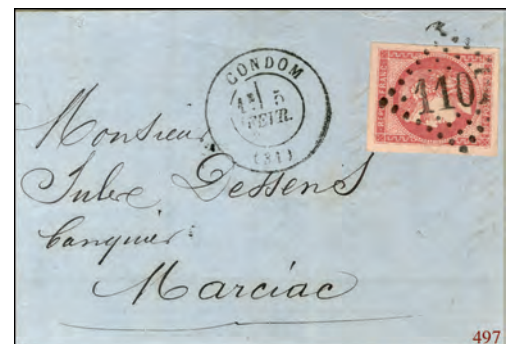 CONDOM
5
FEVR.
(31)
110
Monsieur
Jules Dessens
banquier
Marciac
497